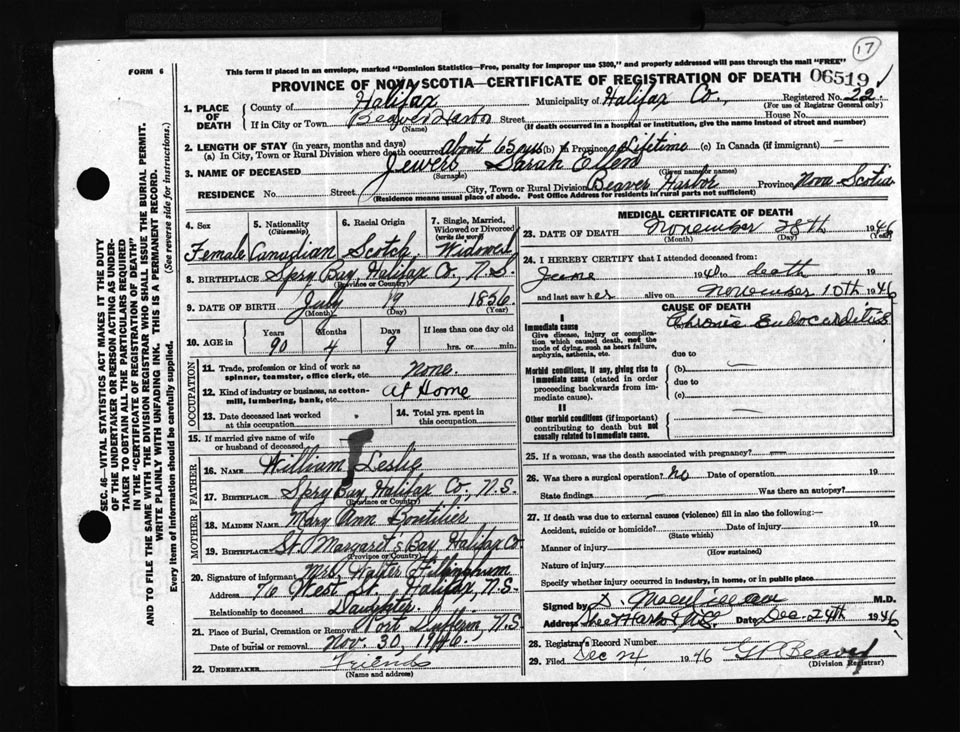 17
FORM 6
This form if placed in an envelope, marked "Dominion Statistics—Free, penalty for improper use $300," and properly addressed will pass through the mail "FREE"
PROVINCE OF NOVA SCOTIA—CERTIFICATE OF REGISTRATION OF DEATH 06519
1. PLACE OF DEATH County of Halifax Municipality of Halifax Co., Registered No. 22
(For use of Registrar General only)
If in City or Town Beaver Harbor Street House No.
(Name) (If death occurred in a hospital or institution, give the name instead of street and number)
2. LENGTH OF STAY (in years, months and days)
(a) In City, Town or Rural Division where death occurred About 65 yrs (b) In Province Lifetime (c) In Canada (if immigrant) —
3. NAME OF DECEASED Jewers Sarah Ellen
(Surname) (Given name or names)
RESIDENCE No. Street City, Town or Rural Division Beaver Harbor Province Nova Scotia
(Residence means usual place of abode. Post Office Address for residents in rural parts not sufficient)
4. Sex 5. Nationality (Citizenship) 6. Racial Origin 7. Single, Married, Widowed or Divorced (write the word)
Female Canadian Scotch Widowed
8. BIRTHPLACE Spry Bay, Halifax Co., N.S.
(Province or Country)
9. DATE OF BIRTH July 19 1856
(Month) (Day) (Year)
10. AGE in Years Months Days If less than one day old
90 4 9 hrs. or min.
OCCUPATION
11. Trade, profession or kind of work as spinner, teamster, office clerk, etc. None
12. Kind of industry or business, as cotton-mill, lumbering, bank, etc. At Home
13. Date deceased last worked at this occupation 14. Total yrs. spent in this occupation
15. If married give name of wife or husband of deceased
FATHER
16. NAME William Leslie
17. BIRTHPLACE Spry Bay, Halifax Co., N.S.
(Province or Country)
MOTHER
18. MAIDEN NAME Mary Ann Boutilier
19. BIRTHPLACE St. Margaret's Bay Halifax Co
(Province or Country)
20. Signature of informant Mrs. Walter
Address 76 West St. Halifax N.S.
Relationship to deceased Daughter
21. Place of Burial, Cremation or Removal Port Dufferin, N.S.
Date of burial or removal Nov. 30, 1946.
22. UNDERTAKER Friends
(Name and address)
MEDICAL CERTIFICATE OF DEATH
23. DATE OF DEATH November 28th 1946
(Month) (Day) (Year)
24. I HEREBY CERTIFY that I attended deceased from:
June 1940 to death 19
and last saw her alive on November 10th 1946
CAUSE OF DEATH
I
Immediate cause Chronic Endocarditis
Give disease, injury or complication which caused death, not the mode of dying, such as heart failure, asphyxia, asthenia, etc.
due to
Morbid conditions, if any, giving rise to immediate cause (stated in order proceeding backwards from immediate cause).
(b) —
due to
(c)
II
Other morbid conditions (if important) contributing to death but not causally related to immediate cause. —
25. If a woman, was the death associated with pregnancy? —
26. Was there a surgical operation? No Date of operation 19
State findings Was there an autopsy?
27. If death was due to external causes (violence) fill in also the following:—
Accident, suicide or homicide? Date of injury 19
(State which)
Manner of injury
(How sustained)
Nature of injury
Specify whether injury occurred in industry, in home, or in public place
Signed by M.D.
Address Sheet Harbor N.S. Date Dec. 24th 1946
28. Registrar's Record Number
29. Filed Dec 24 1946 G P Beaver
(Division Registrar)
SEC. 46—VITAL STATISTICS ACT MAKES IT THE DUTY
OF THE UNDERTAKER OR PERSON ACTING AS UNDER-
TAKER TO OBTAIN ALL THE PARTICULARS REQUIRED
IN THE "CERTIFICATE OF REGISTRATION OF DEATH"
AND TO FILE THE SAME WITH THE DIVISION REGISTRAR WHO SHALL ISSUE THE BURIAL PERMIT.
WRITE PLAINLY WITH UNFADING INK. THIS IS A PERMANENT RECORD.
Every item of Information should be carefully supplied. (See reverse side for instructions.)